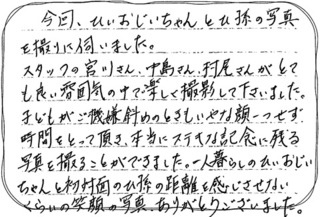 今回、ひいおじいちゃんとひ孫の写真
を撮りに伺いました。
スタッフの宮川さん、中島さん、村尾さんがとて
も良い雰囲気の中で楽しく撮影して下さいました。
子どもがご機嫌斜めのときもいやな顔一つせず
時間をとって頂き、本当にステキな記念に残る
写真を撮ることができました。一人暮らしのひいおじい
ちゃんと初対面のひ孫の距離を感じさせない
くらいの笑顔の写真、ありがとうございました。